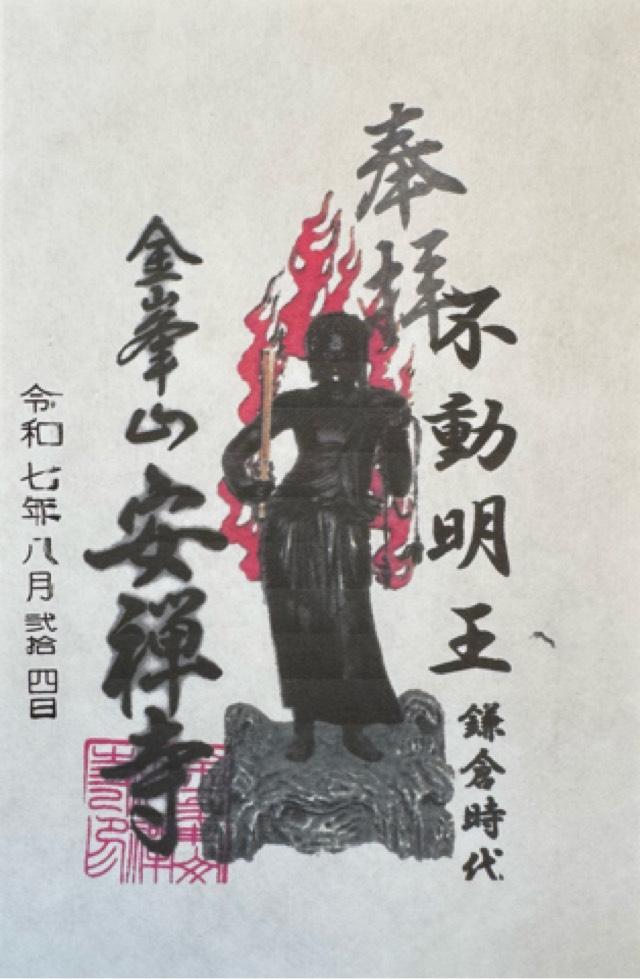 奉拝
不動明王
鎌倉時代
金峯山 安禅寺
令和七年八月弐拾四日